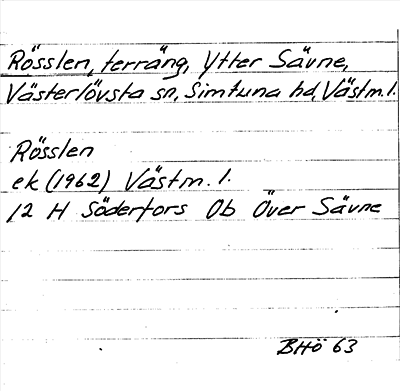 Rösslen, terräng, Ytter Sävne,
Västerlövsta sn, Simtuna hd, Västm. l.
Rösslen
ek (1962) Västm. l.
12 H Söderfors Ob Över Sävne
BHö 63